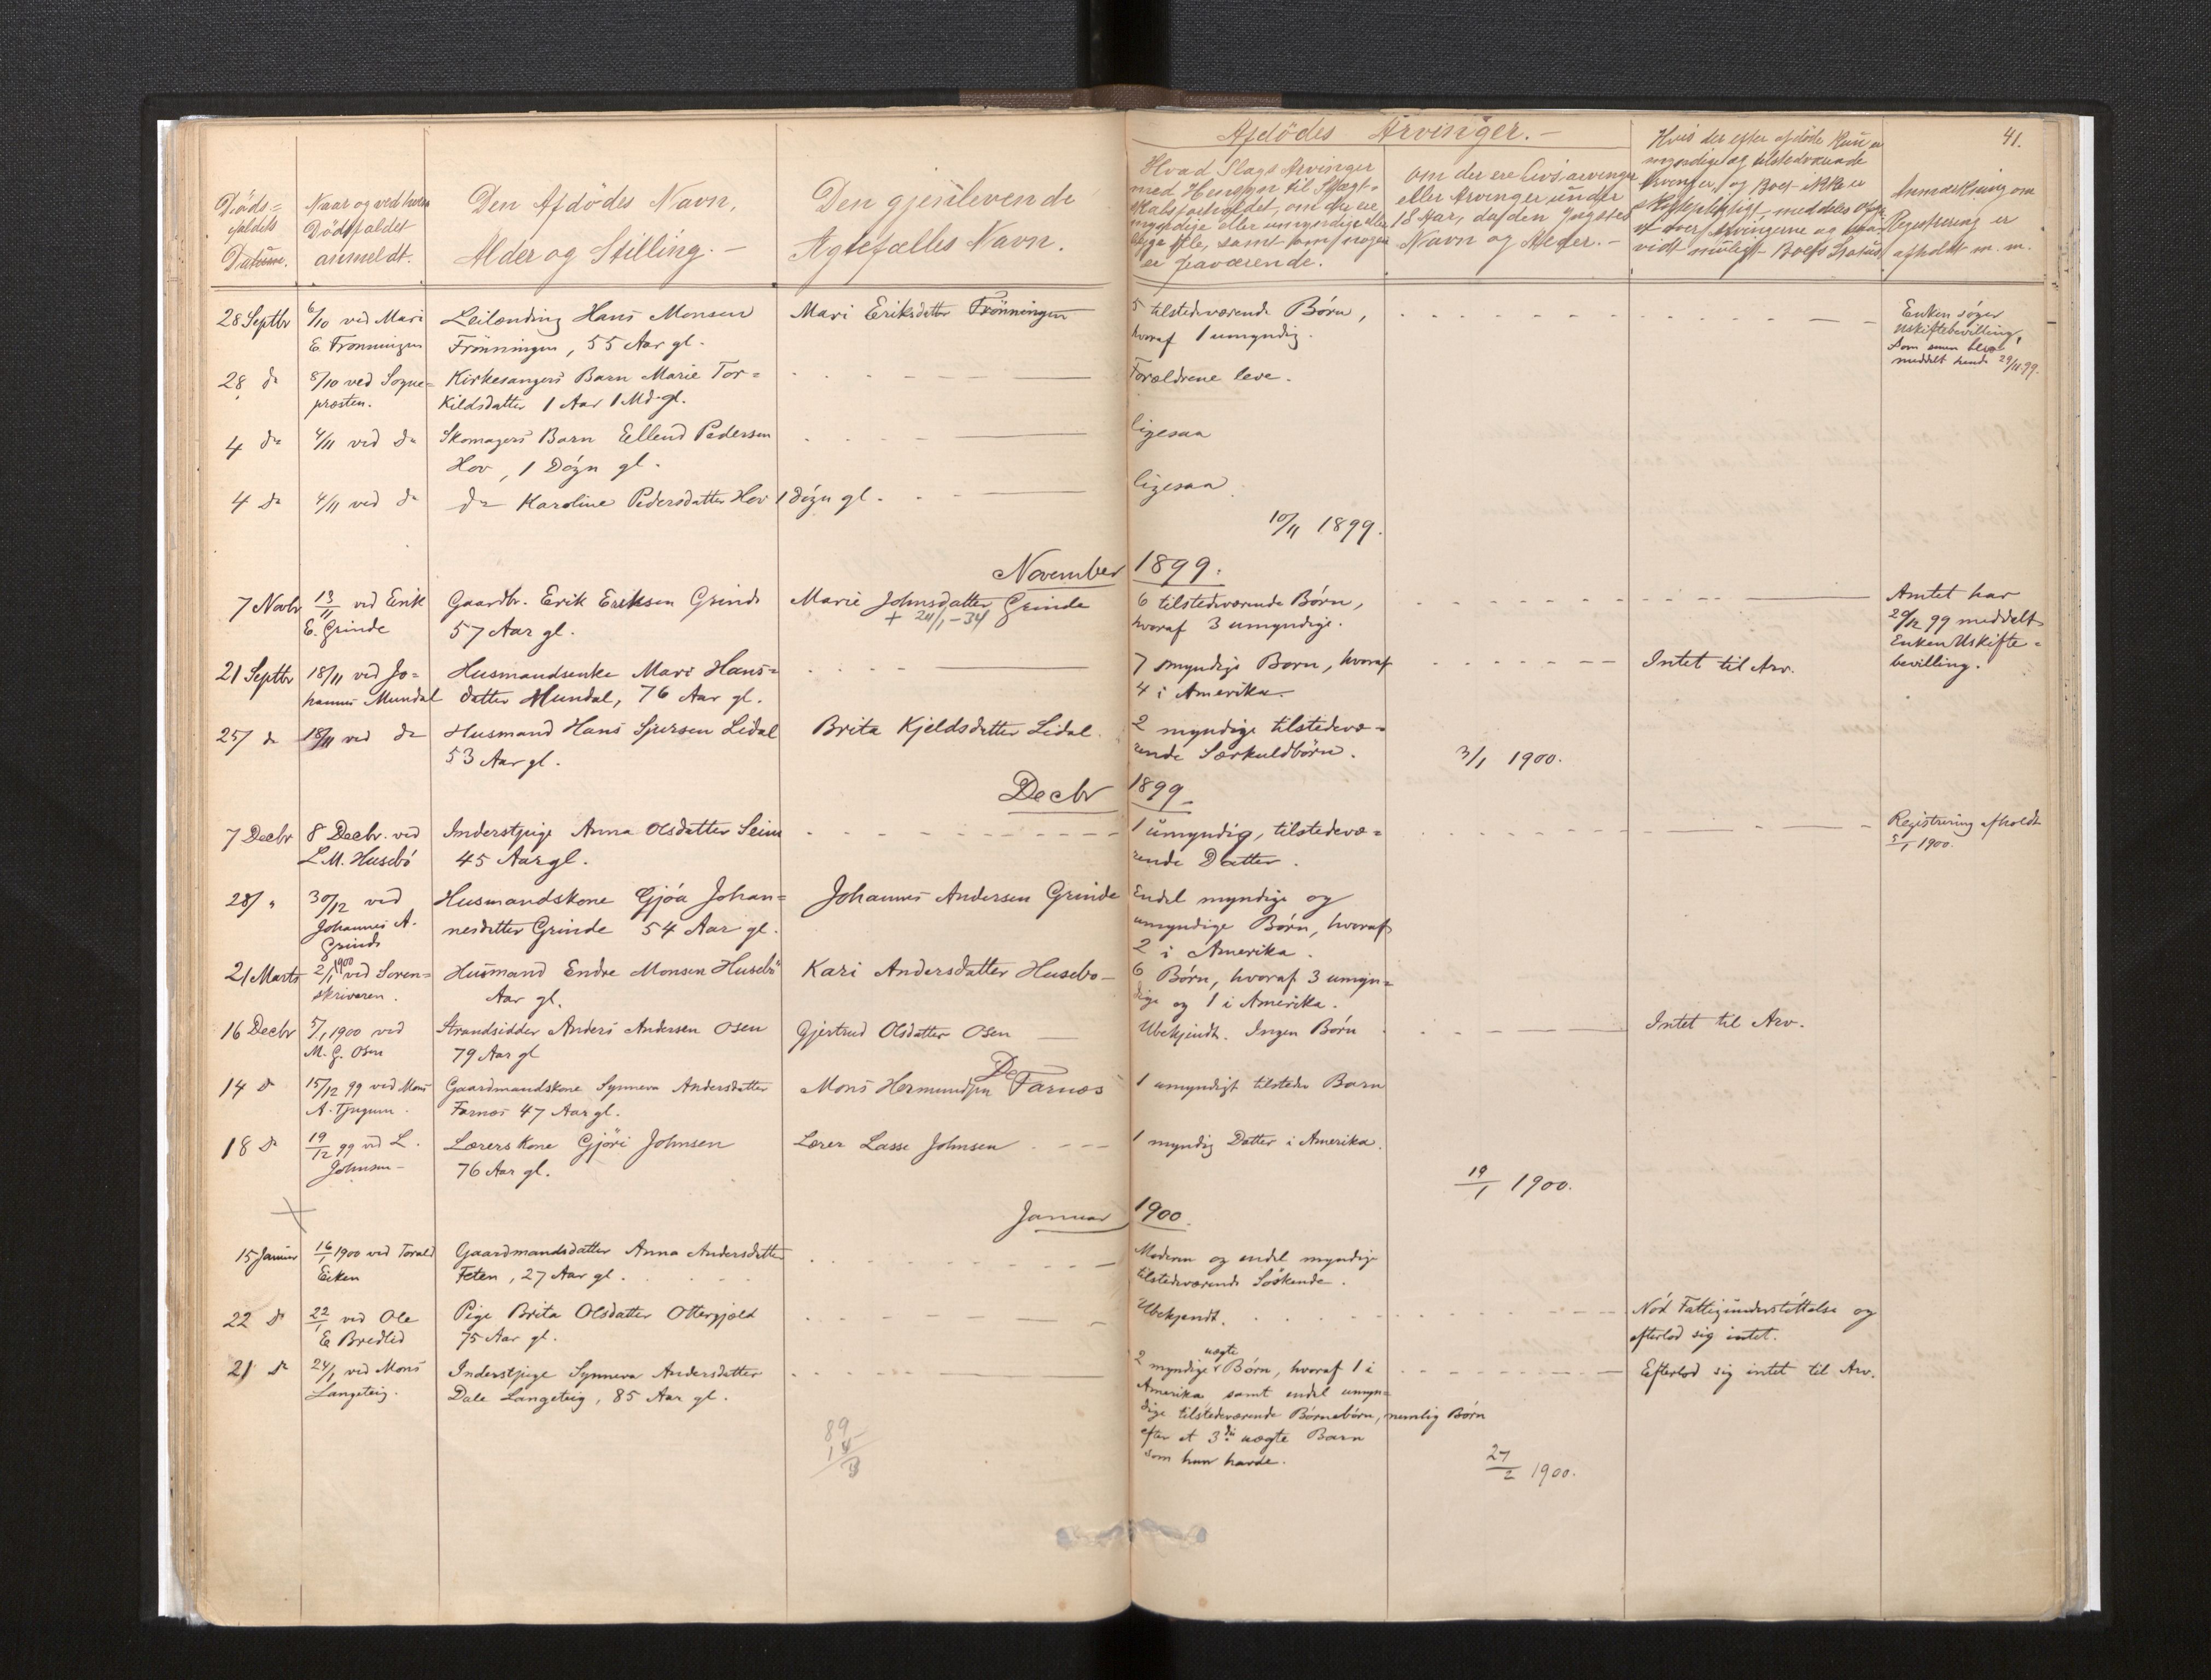 41.
Afdödes Arvinger.—
Döds=
faldets
Datum.
Naar og ved hvem
Dödsfaldet
anmeldt.
Den Afdödes Navn,
Alder og Stilling.—
Den gjenlevende
Ægtefælles Navn.
Hvad Slags Arvinger
med Hensyn til Slægt-
skabsforholdet, om de ere
myndige eller umyndige eller
samt om nogen
er fraværende.
Om der ere Livsarvinger
eller Arvinger under
18 Aar, da den yngstes
Navn og Alder.—
Hvis der efter afdöde kun er
myndige og tilstedværende
Arvinger, og Boet ikke er
skiftepligtigt, meddeles
over Arvingerne og saa-
vidt muligt Boets Status
Anmærkning om
Registrering er
afholdt m. m.
28 Septbr
6/10 ved Mari
E. Frønningen
Leilending Hans Monsen
Frønningen, 55 Aar gl.
Mari Eriksdatter Frønningen
5 tilstedeværende Børn,
hvoraf 1 umyndig.
Enken søger
Uskiftebevilling,
som
meddelt hende 29/11.99.
28 do
8/10 ved Sogne=
præsten.
Kirkesangers Barn Marie Tor=
kildsdatter 1 Aar 1 Md. gl.
Forældrene leve.
4 do
4/11 ved do
Skomagers Barn Ellend Pedersen
Hov, 1 Døgn gl.
ligesaa
4 do
4/11 ved do
do Karoline Pedersdatter Hov 1 døgn gl.
ligesaa
10/11 1899.
November 1899.
7 Novbr
13/11 ved Erik
E. Grinde
Gaardbr. Erik Eriksen Grinde
57 Aar gl.
Marie Johnsdatter Grinde
+ 24/1-34
6 tilstedeværende Børn,
hvoraf 3 umyndige.
Amtet har
29/12 99 meddelt
Enken Uskifte=
bevilling.
21 Septbr
18/11 ved Jo=
hannes Mundal
Husmandsenke Mari Hans=
datter Mundal, 76 Aar gl.
7 myndige Børn, hvoraf
4 i Amerika.
Intet til Arv.
25 do
18/11 ved do
Husmand Hans Sjursen Lidal
53 Aar gl.
Brita Kjeldsdatter Lidal.
2 myndige tilstedevæ=
rende Særkuldbørn.
3/1 1900.
Decbr 1899.
7 Decbr
8 Decbr. ved
L. M. Husebø
Inderstpige Anna Olsdatter Seim
45 Aar gl.
1 umyndig, tilstedevæ=
rende Datter.
Registrering afholdt
5/1 1900.
28 "
30/12 ved
Johannes A.
Grinde
Husmandskone Gjøa Johan=
nesdatter Grinde 54 Aar gl.
Johannes Andersen Grinde
Endel myndige og
umyndige Børn, hvoraf
2 i Amerika.
21 Marts
2/1 1900 ved Soren=
skriveren.
Husmand Endre Monsen Husebø
Aar gl.
Kari Andersdatter Husebø—
6 Børn, hvoraf 3 umyn=
dige og 1 i Amerika.
16 Decbr
5/1 1900 ved
M. G. Osen
Strandsidder Anders Andersen Osen
79 Aar gl
Gjertrud Olsdatter Osen
Ubekjendt. Ingen Børn
Intet til Arv.
14 do
15/12 99 ved Mons
A. Tjugum.
Gaardmandskone Synneva Andersdatter
Farnes 47 Aar gl.
Mons Hermundsen Farnæs
1 umyndigt tilstede Barn
18 do
19/12 99 ved L.
Johnsen—
Lærers Kone Gjøri Johnsen
76 Aar gl.
Lærer Lasse Johnsen
1 myndig Datter i Amerika.
19/1 1900.
Januar 1900.
15 Januar
16/1 1900 ved Torald
Eeken
Gaardmandsdatter Anna Andersdatter
Feten, 27 Aar gl.
Moderen og endel myndige
tilstedeværende Søskende.
22 do
22/1 ved Ole
E. Bredlid
Pige Brita Olsdatter Ottergjæld
75 Aar gl.
Ubekjendt.
Nød Fattigunderstøttelse og
efterlod sig intet.
21 do
24/1 ved Mons
Langeteig.
Inderstpige Synneva Andersdatter
Dale Langeteig, 85 Aar gl.
2 myndige uægte Børn, hvoraf 1 i
Amerika samt endel umyn=
dige tilstedeværende Børnebørn, nemlig Børn
efter et 3die uægte Barn
som hun havde.
Efterlod sig intet til Arv.
27/2 1900.